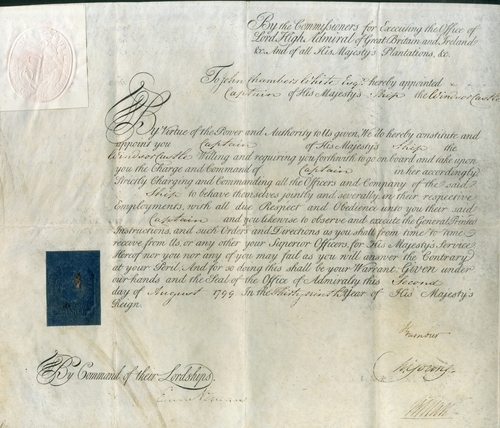 By the Commissioners for Executing the Office of
Lord High Admiral of Great Britain and Ireland
&c. And of all His Majesty's Plantations, &c.
To John Chambers White Esqr. hereby appointed
Captain of His Majesty's Ship the Windsor Castle
By Virtue of the Power and Authority to Us given, We do hereby constitute and
appoint you Captain of His Majesty's Ship the
Windsor Castle Willing and requiring you forthwith to go on board and take upon
you the Charge and Command of Captain in her accordingly
Strictly Charging and Commanding all the Officers and Company of the said
Ship to behave themselves jointly and severally in their respective
Employments, with all due Respect and Obedience unto you their said
Captain and you likewise to observe and execute the General Printed
Instructions, and such Orders and Directions as you shall from time to time
receive from Us, or any other your Superior Officers, for His Majesty's Service
Hereof nor you nor any of you may fail as you will answer the Contrary
at your Peril. And for so doing this shall be your Warrant. Given under
our hands and the Seal of the Office of Admiralty this Second
day of August 1799 In the Thirty ninth Year of His Majesty's
Reign.
By Command of their Lordships.